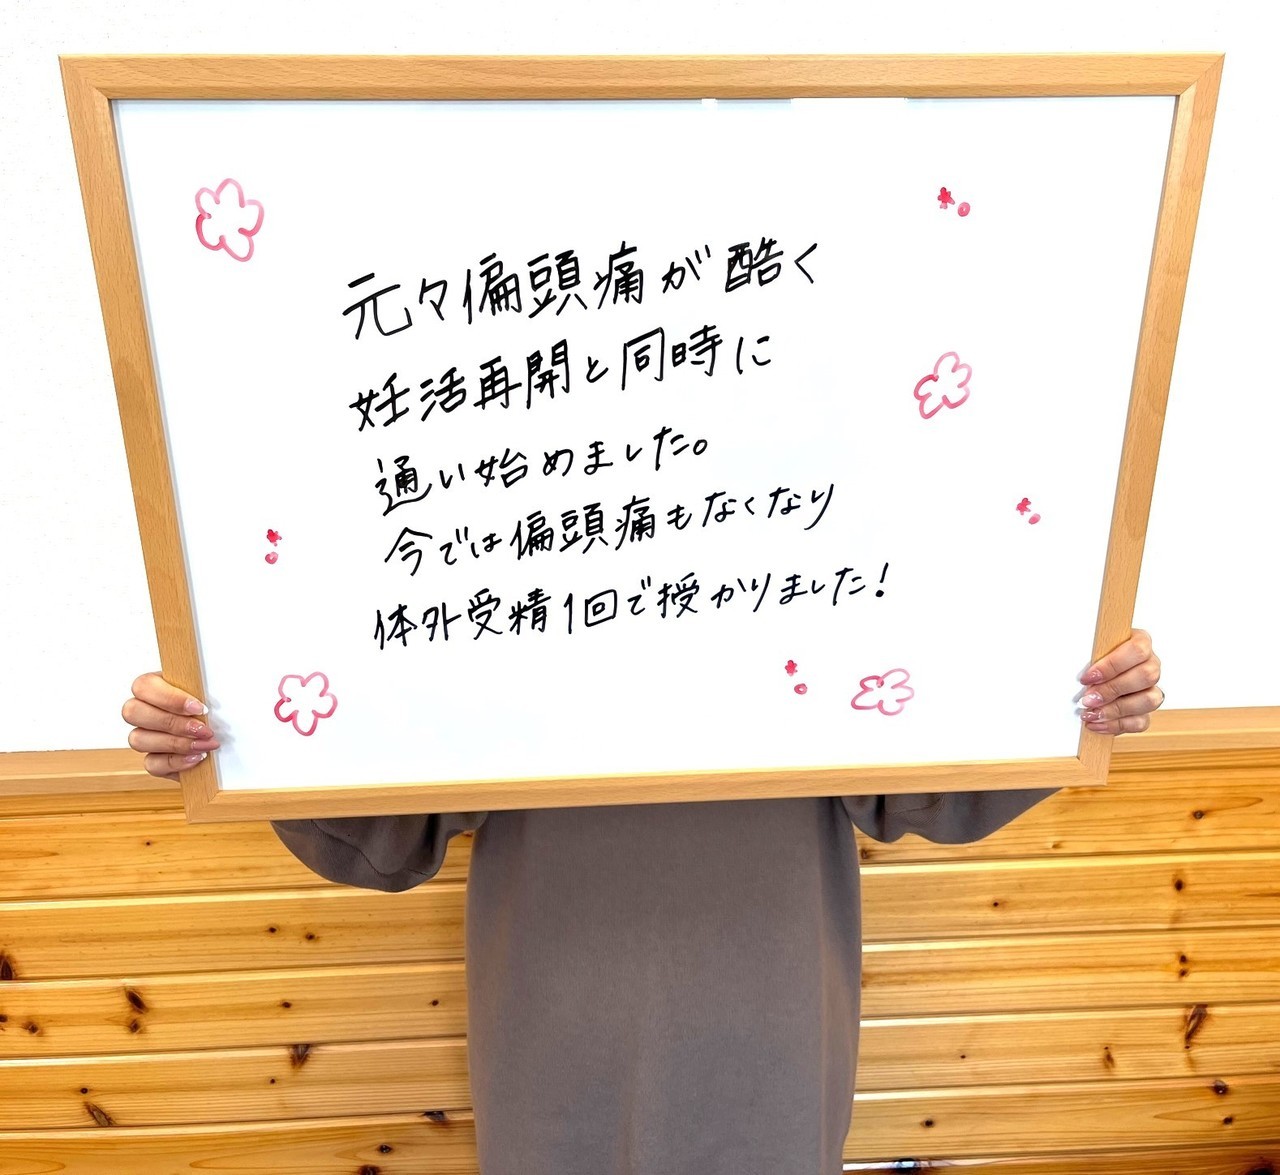 元々偏頭痛が酷く
妊活再開と同時に
通い始めました。
今では偏頭痛もなくなり
体外受精1回で授かりました!